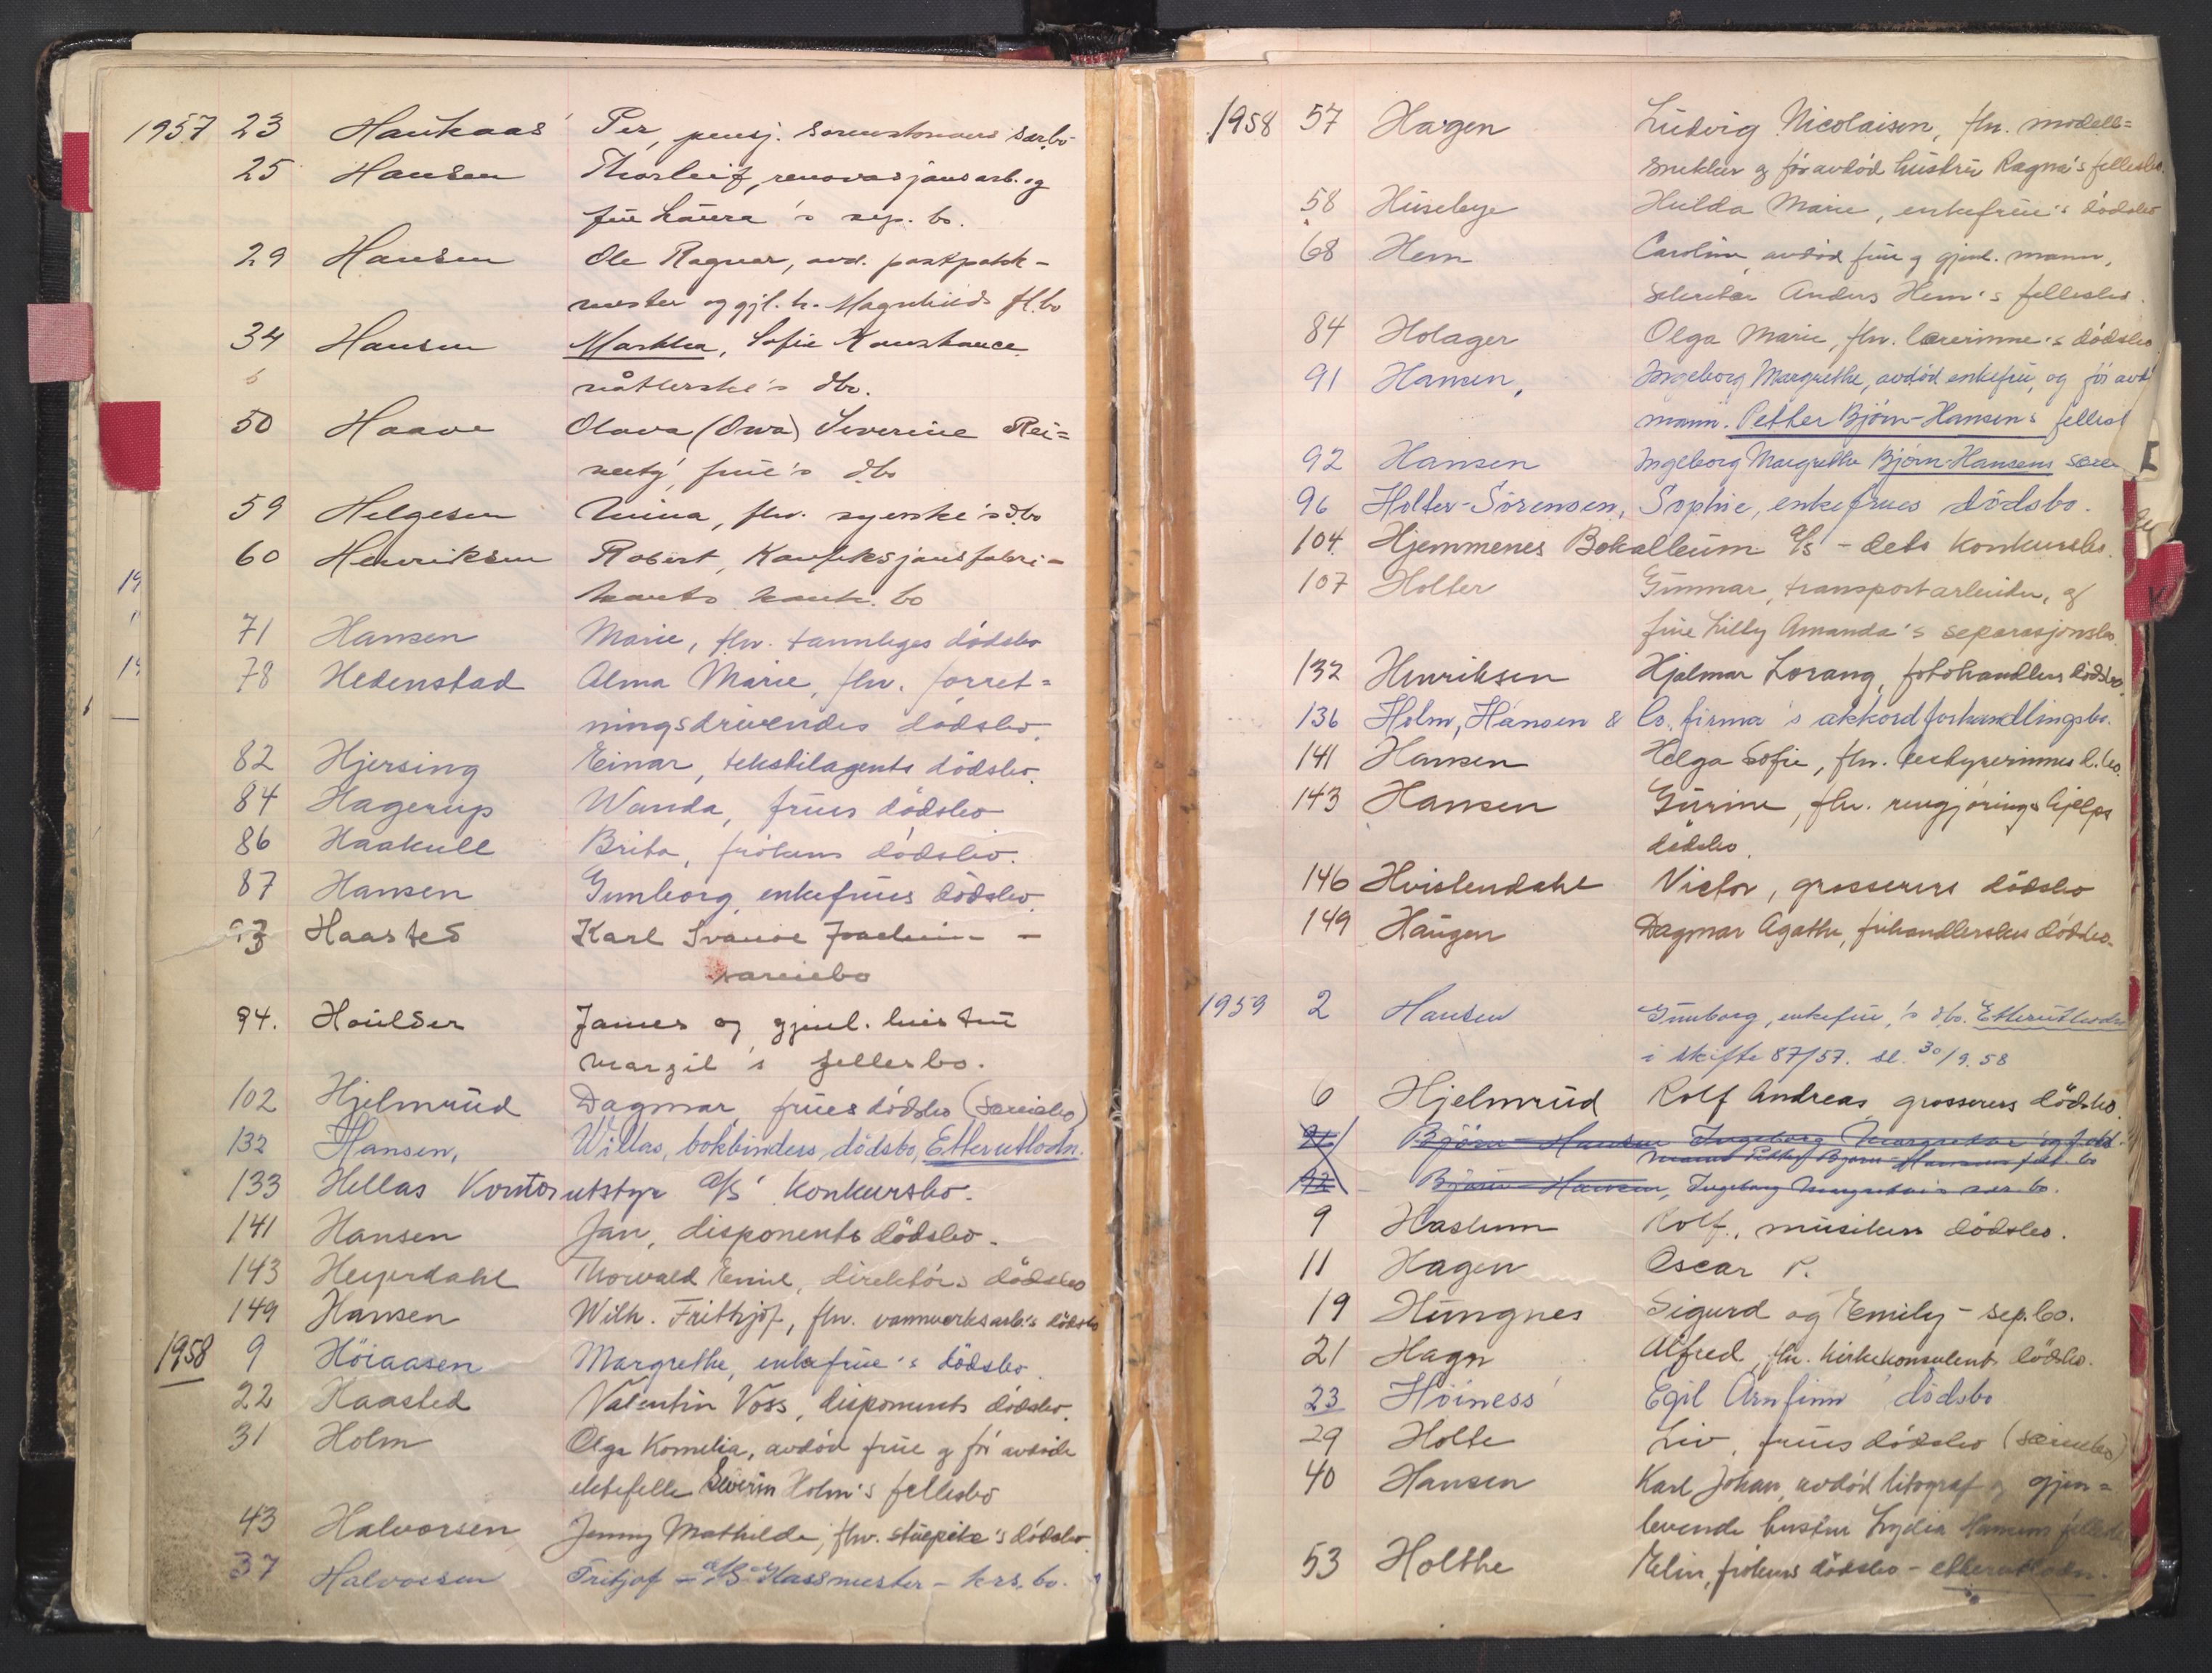 1957 23 Haukaas Per, pensj. sorenskrivers særbo
25 Hansen Thorleif, renovasjonsarb. og
frue Laura's sep. bo.
29 Hansen Ole Ragnar, avd. postpakk-
mester og gjl. h. Magnhild's fl.bo
34 Hansen Martha, Sofie Konstance
nåtlerske's dbo.
50 Haave Olava (Owa) Severine Rei=
nerty, frue's dbo
59 Helgesen Anina, fhv. syerske's dbo
60 Henriksen Robert, Konfeksjonsfabri-
kants konk. bo
71 Hansen Marie, fhv. tannleges dödsbo
78 Hedenstad Alma Marie, fhv. forret=
ningsdrivendes dödsbo.
82 Hjersing Einar, tekstilagents dödsbo.
84 Hagerup Wanda, frues dödsbo
86 Haakull Brita, frökens dödsbo.
87 Hansen Gunborg, enkefrues dödsbo.
93 Haasted Karl Svanöe Joachim - -
særeiebo
94. Houlder James og gjenl. hustru
Margit's fellesbo.
102 Hjelmrud Dagmar, frues dödsbo (særeiebo)
132 Hansen, Willas, bokbinders, dödsbo, Etterutlodn.
133 Hellas Kontorutstyr a/s' Konkursbo.
141 Hansen Jan, disponents dödsbo.
143 Heyerdahl Thorvald Emil, direktörs dödsbo
149 Hansen Wilh. Frithjof, fhv. vannverksarb.'s dödsbo
1958 9 Höiaasen Margrethe, enkefrue's dödsbo.
22 Haasted Valentin Voss, disponents dödsbo.
31 Holm Olga Kornelia, avdöd frue og för avdöde
ektefelle Severin Holm's fellesbo
43 Halvorsen Jenny Mathilde, fhv. stuepike's dödsbo.
37 Halvorsen Fritjof - a/s Glassmester - krs. bo.
1958 57 Hagen Ludvig Nicolaisen, fhv. modell=
snekker og för avdöd hustru Ragna's fellesbo.
58 Huseby Hulda Marie, enkefrue's dödsbo
68 Hem Caroline, avdöd frue og gjenl. mann,
Sekretær Anders Hem's fellesbo.
84 Holager Olga Marie, fhv. lærerinne's dödsbo
91 Hansen, Ingeborg Margrethe, avdöd enkefru, og för avd
mann. Petter Björn-Hansen's felles
92 Hansen Ingeborg Margrethe Björn-Hansens sære
96 Holter-Sörensen, Sophie, enkefrues dödsbo.
104. Hjemmenes Bokalleum a/s - dets konkursbo.
107 Holter Gunnar, transportarbeider, og
frue Lilly Amanda's separasjonsbo.
132 Henriksen Hjalmar Lorang, fotohandlers dödsbo.
136 Holm, Hansen & Co. firma's akkordforhandlingsbo.
141 Hansen Helga Sofie, fhv. bestyrerinnes d.bo.
143 Hansen Gurine, fhv. rengjörings hjelps
dödsbo.
146 Hvistendahl Victor, grosserers dödsbo
149 Haugen Dagmar Agathe, frihandlerskes dödsbo.
1959 2 Hansen Gunborg, enkefrue,'s dbo. Etterutlodn
i skifte 87/57. sl. 30/9.58
6 Hjelmrud Rolf Andreas grosserers dödsbo.
91 Björn-Hansen Ingeborg Margrethe og f. dd.
mann Petter Bjørn-Hansens fel. bo
92 Björn-Hansen, Ingeborg Margrethe's sær. bo.
9 Haslum Rolf, musikers dödsbo.
11 Hagen Oscar P.
19 Hungnes Sigurd og Emily - sep.bo.
21 Hagn Alfred, fhv. kirkekonsulents dödsbo.
23 Höiness Egil Arnfinn dödsbo
29 Holte Liv, frues dödsbo (særeiebo)
40 Hansen Karl Johan, avdöd litograf og gjen=
levende hustru Lydia Hansens fellesbo
53 Holthe Elin, frökens dödsbo - etterutlodn.